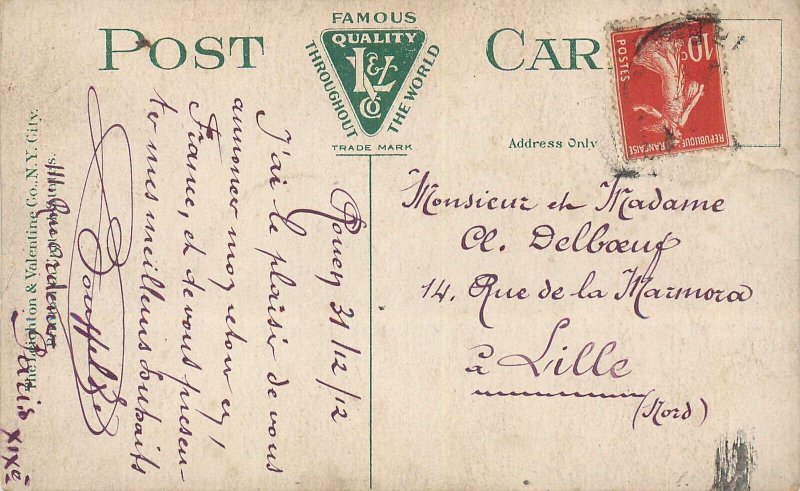 FAMOUS
QUALITY
L&V
Co
THROUGHOUT THE WORLD
TRADE MARK
POST CAR
Address Only
10c
POSTES
REPUBLIQUE FRANÇAISE
Rouen 31/12/12
J'ai le plaisir de vous
annoncer mon retour en
France, et de vous présen-
ter mes meilleurs souhaits
Paris XIXe
Monsieur et Madame
Cl. Delbœuf
14. Rue de la Marmora
à Lille
(Nord)
The Leighton & Valentine Co., N.Y. City.